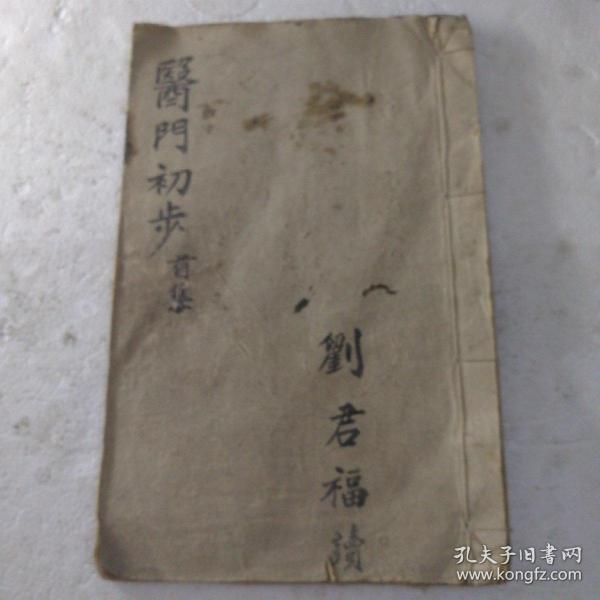 醫門初步
首集
劉君福讀
孔夫子旧书网
www.kongfz.com